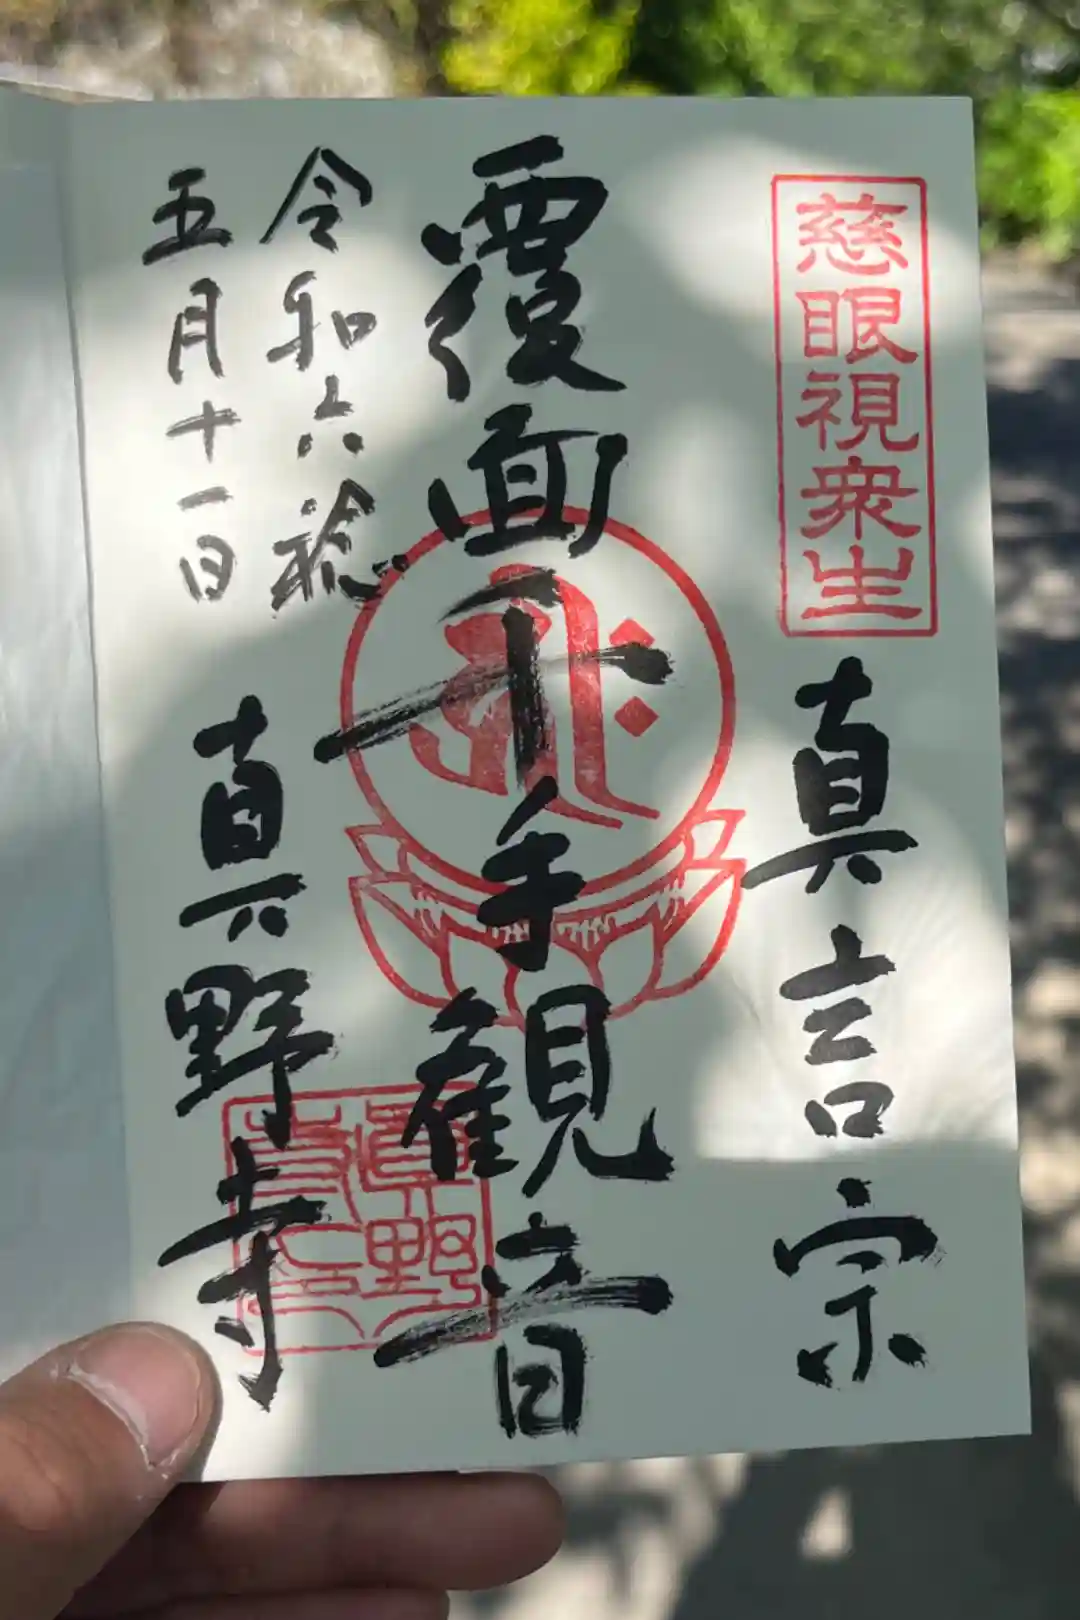 慈眼視衆生
真言宗
覆面千手観音
令和六稔
五月十一日
真野寺